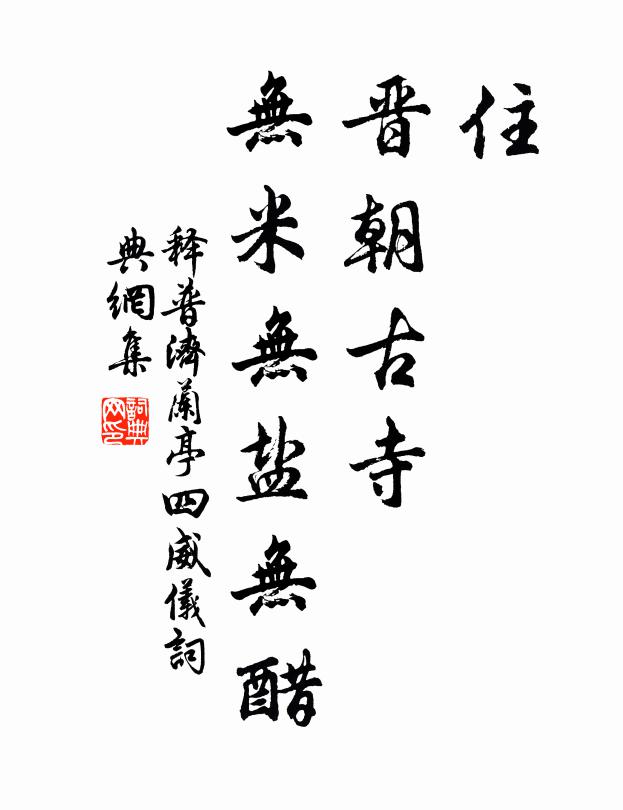 住
晋朝古寺
無米無盐無醋
释普濟蘭亭四威儀詞
典網集
詞典网印